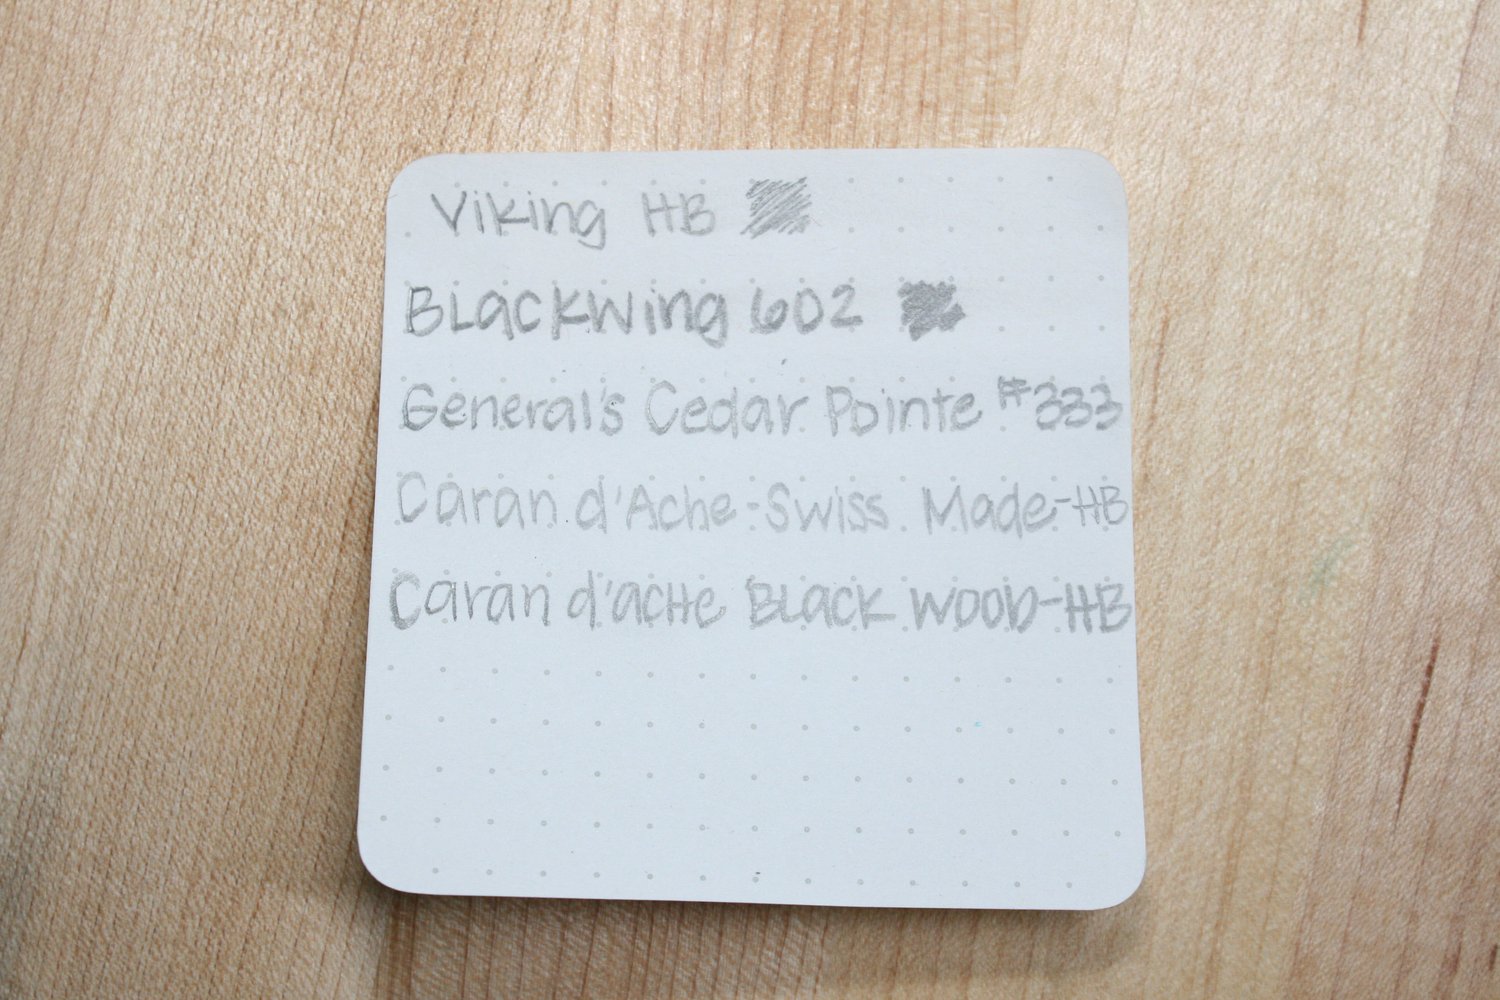 Viking HB
Blackwing 602
General's Cedar Pointe #333
Caran d'Ache-Swiss Made-HB
Caran d'acHe Black WOOD-HB